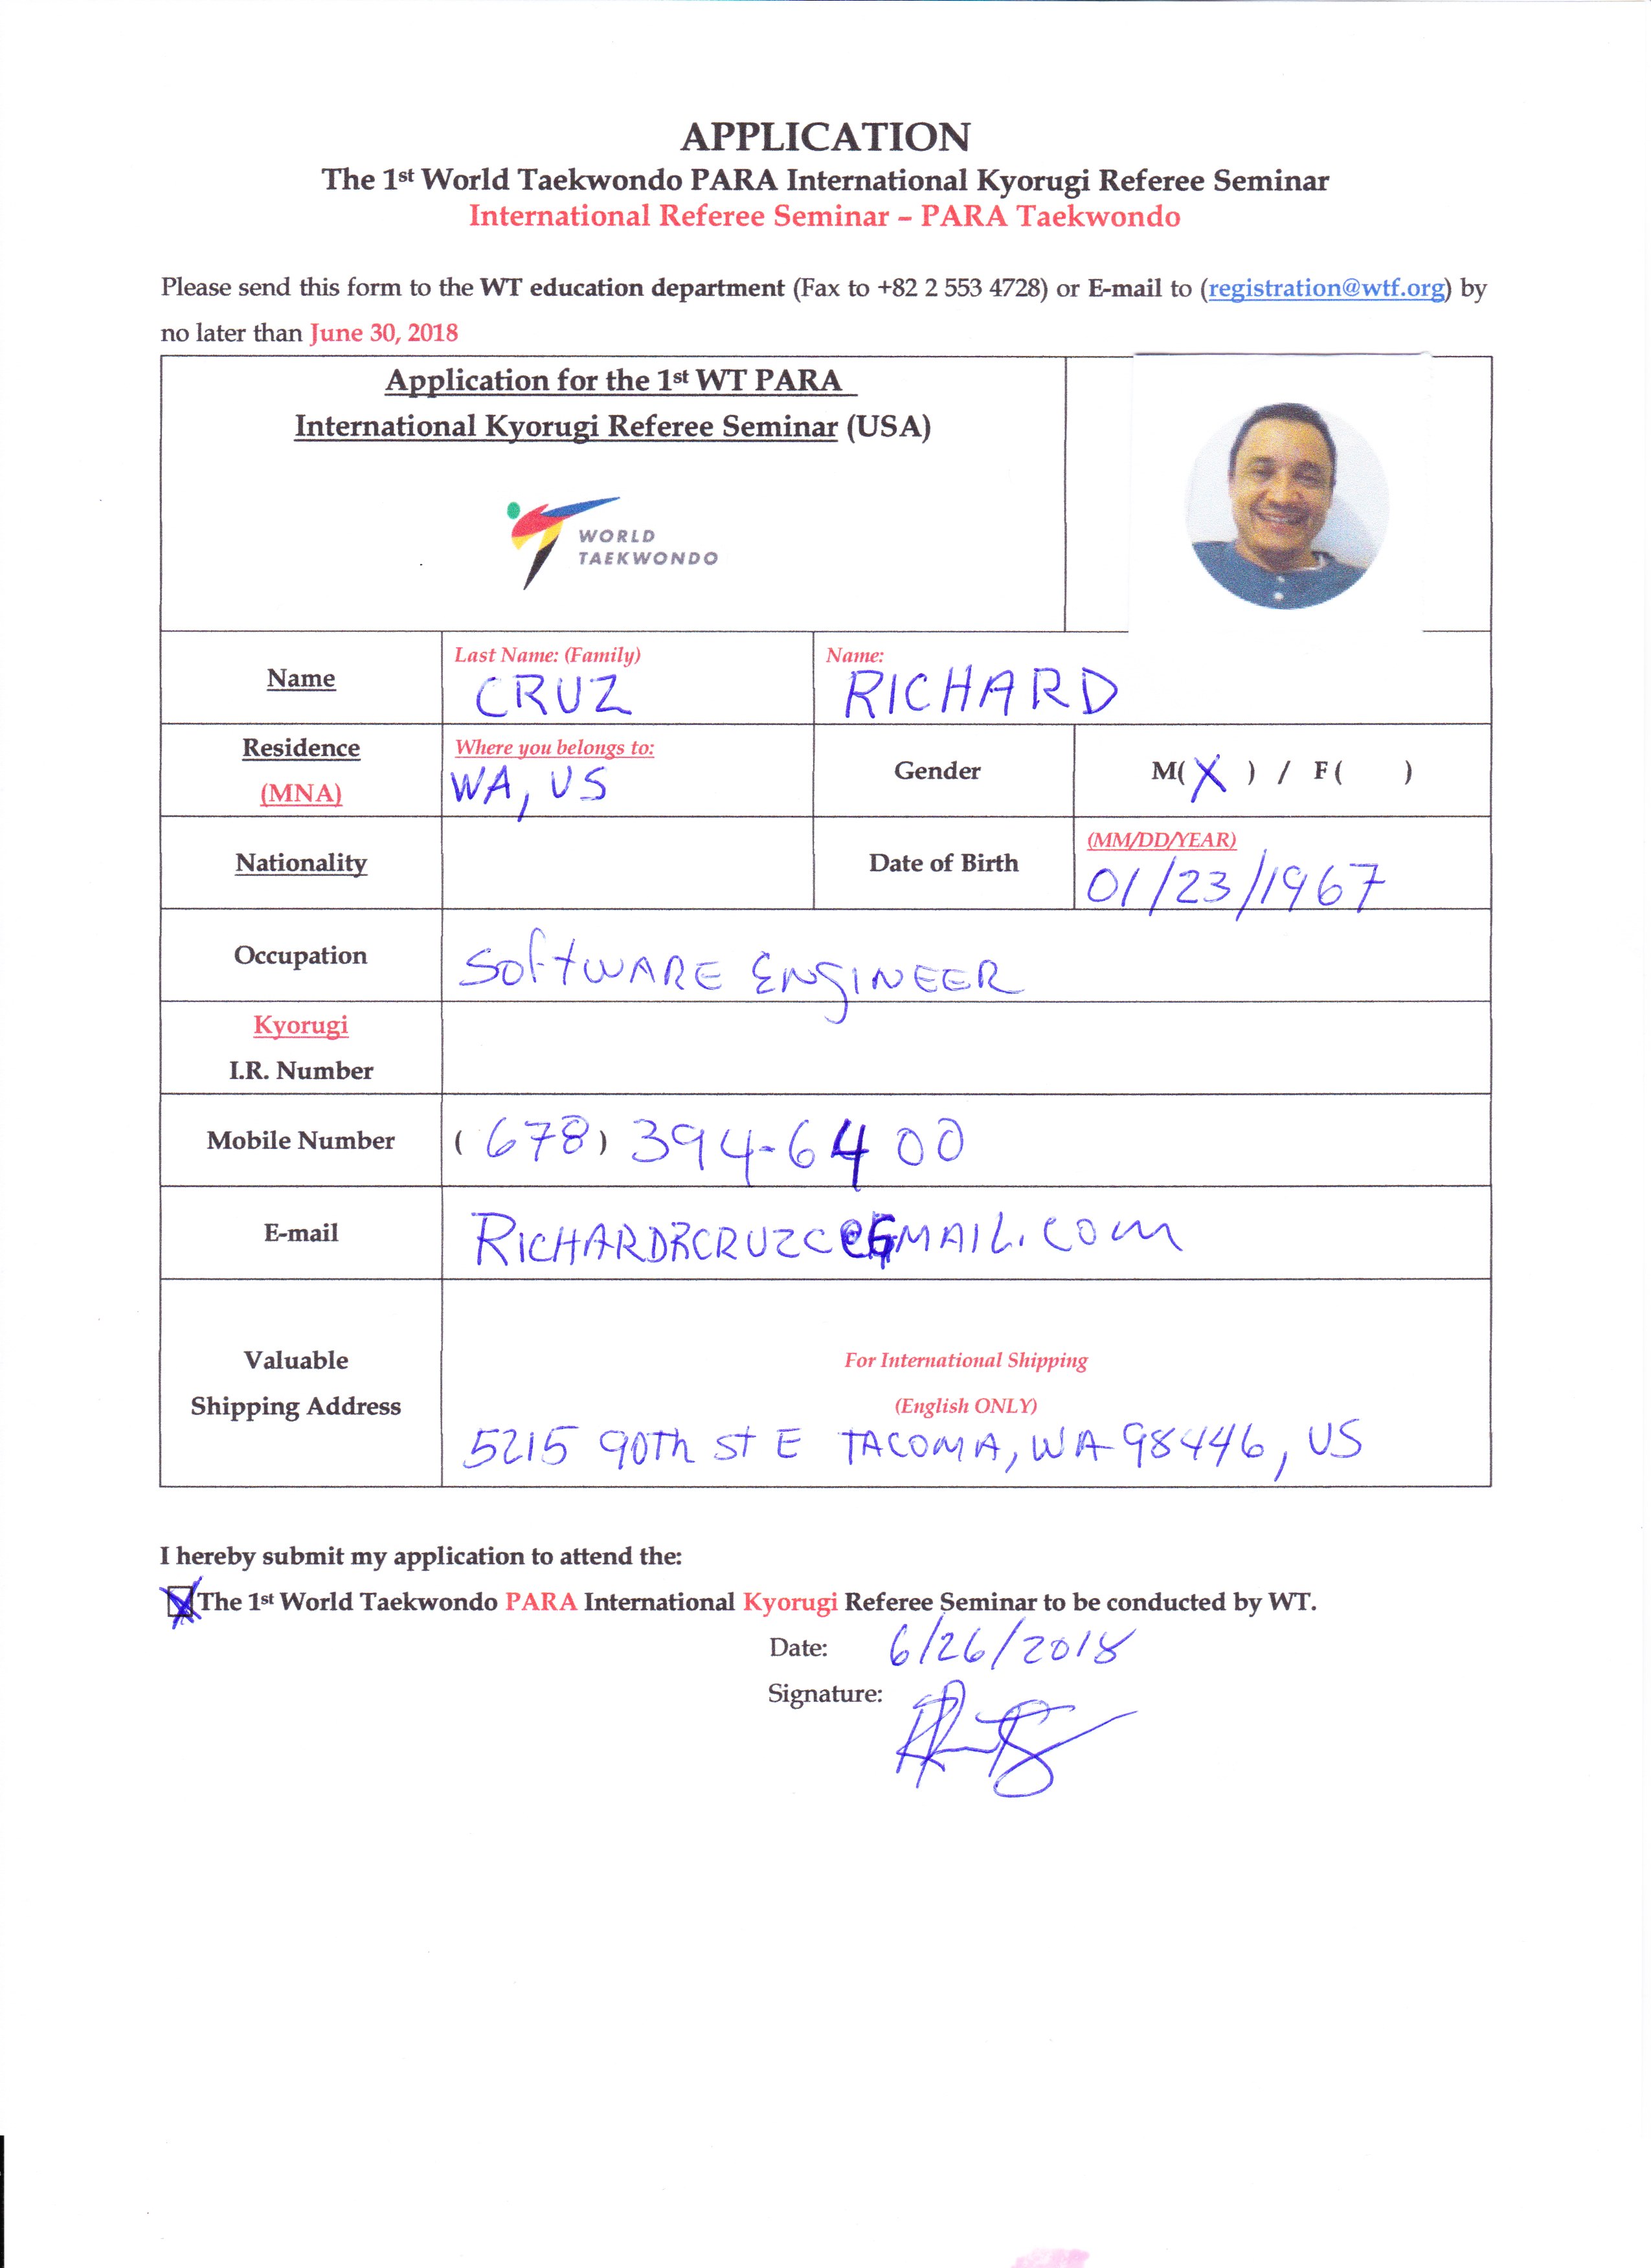 APPLICATION
The 1st World Taekwondo PARA International Kyorugi Referee Seminar
International Referee Seminar – PARA Taekwondo
Please send this form to the WT education department (Fax to +82 2 553 4728) or E-mail to (registration@wtf.org) by
no later than June 30, 2018
Application for the 1st WT PARA
International Kyorugi Referee Seminar (USA)
WORLD
TAEKWONDO
Name
Last Name: (Family)
CRUZ
Name:
RICHARD
Residence
(MNA)
Where you belongs to:
WA, US
Gender
M( X ) / F ( )
Nationality
Date of Birth
(MM/DD/YEAR)
01/23/1967
Occupation
SOFTWARE ENGINEER
Kyorugi
I.R. Number
Mobile Number
(678) 394-6400
E-mail
Valuable
Shipping Address
For International Shipping
(English ONLY)
5215 90Th St E TACOMA, WA 98446, US
I hereby submit my application to attend the:
The 1st World Taekwondo PARA International Kyorugi Referee Seminar to be conducted by WT.
Date: 6/26/2018
Signature: